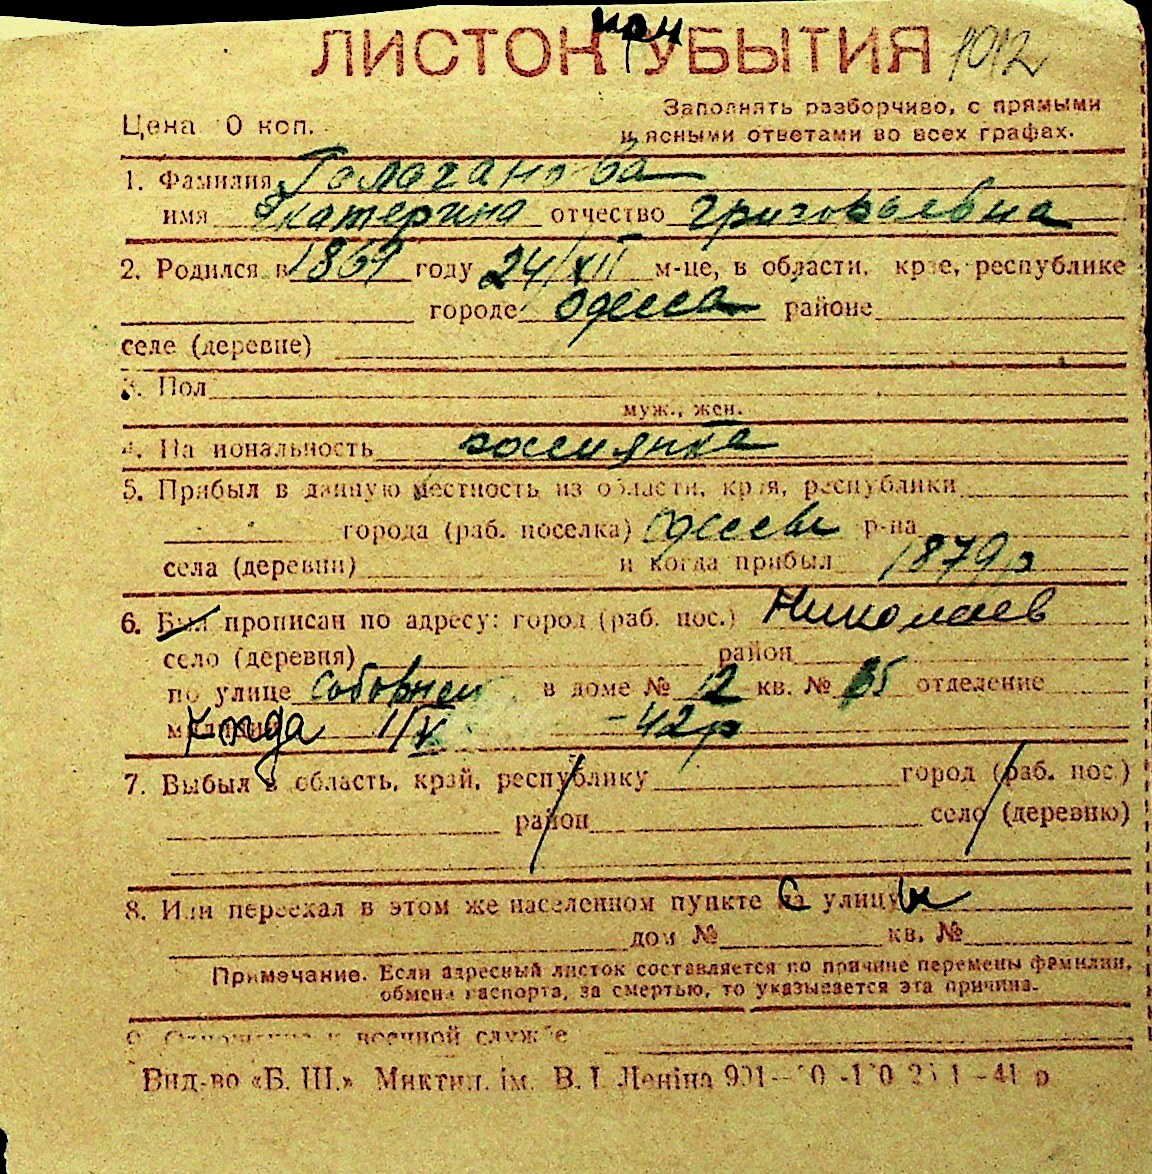 при
ЛИСТОК УБЫТИЯ 1912
Цена 0 коп.
Заполнять разборчиво, с прямыми
и ясными ответами во всех графах.
1. Фамилия Голочанова
имя Екатерина отчество Григорьевна
2. Родился в 1869 году 24/XII м-це, в области, крае, республике
городе Одесса районе
селе (деревне)
3. Пол
муж., жен.
4. Национальность россиянка
5. Прибыл в данную местность из области, края, республики
города (раб. поселка) Одессы р-на
села (деревни) и когда прибыл 1879 р
6. Был прописан по адресу: город (раб. пос.) Николаев
село (деревня) район
по улице Соборней в доме № 12 кв. № 35 отделение
милиции Когда 1/V -42 р
7. Выбыл в область, край, республику город (раб. пос.)
район село (деревню)
8. Или переехал в этом же населенном пункте С улицы
дом № кв. №
Примечание. Если адресный листок составляется по причине перемены фамилии,
обмена паспорта, за смертью, то указывается эта причина.
9. Отношение к военной службе
Вид-во «Б. Ш.» Миктип. ім. В. І. Леніна